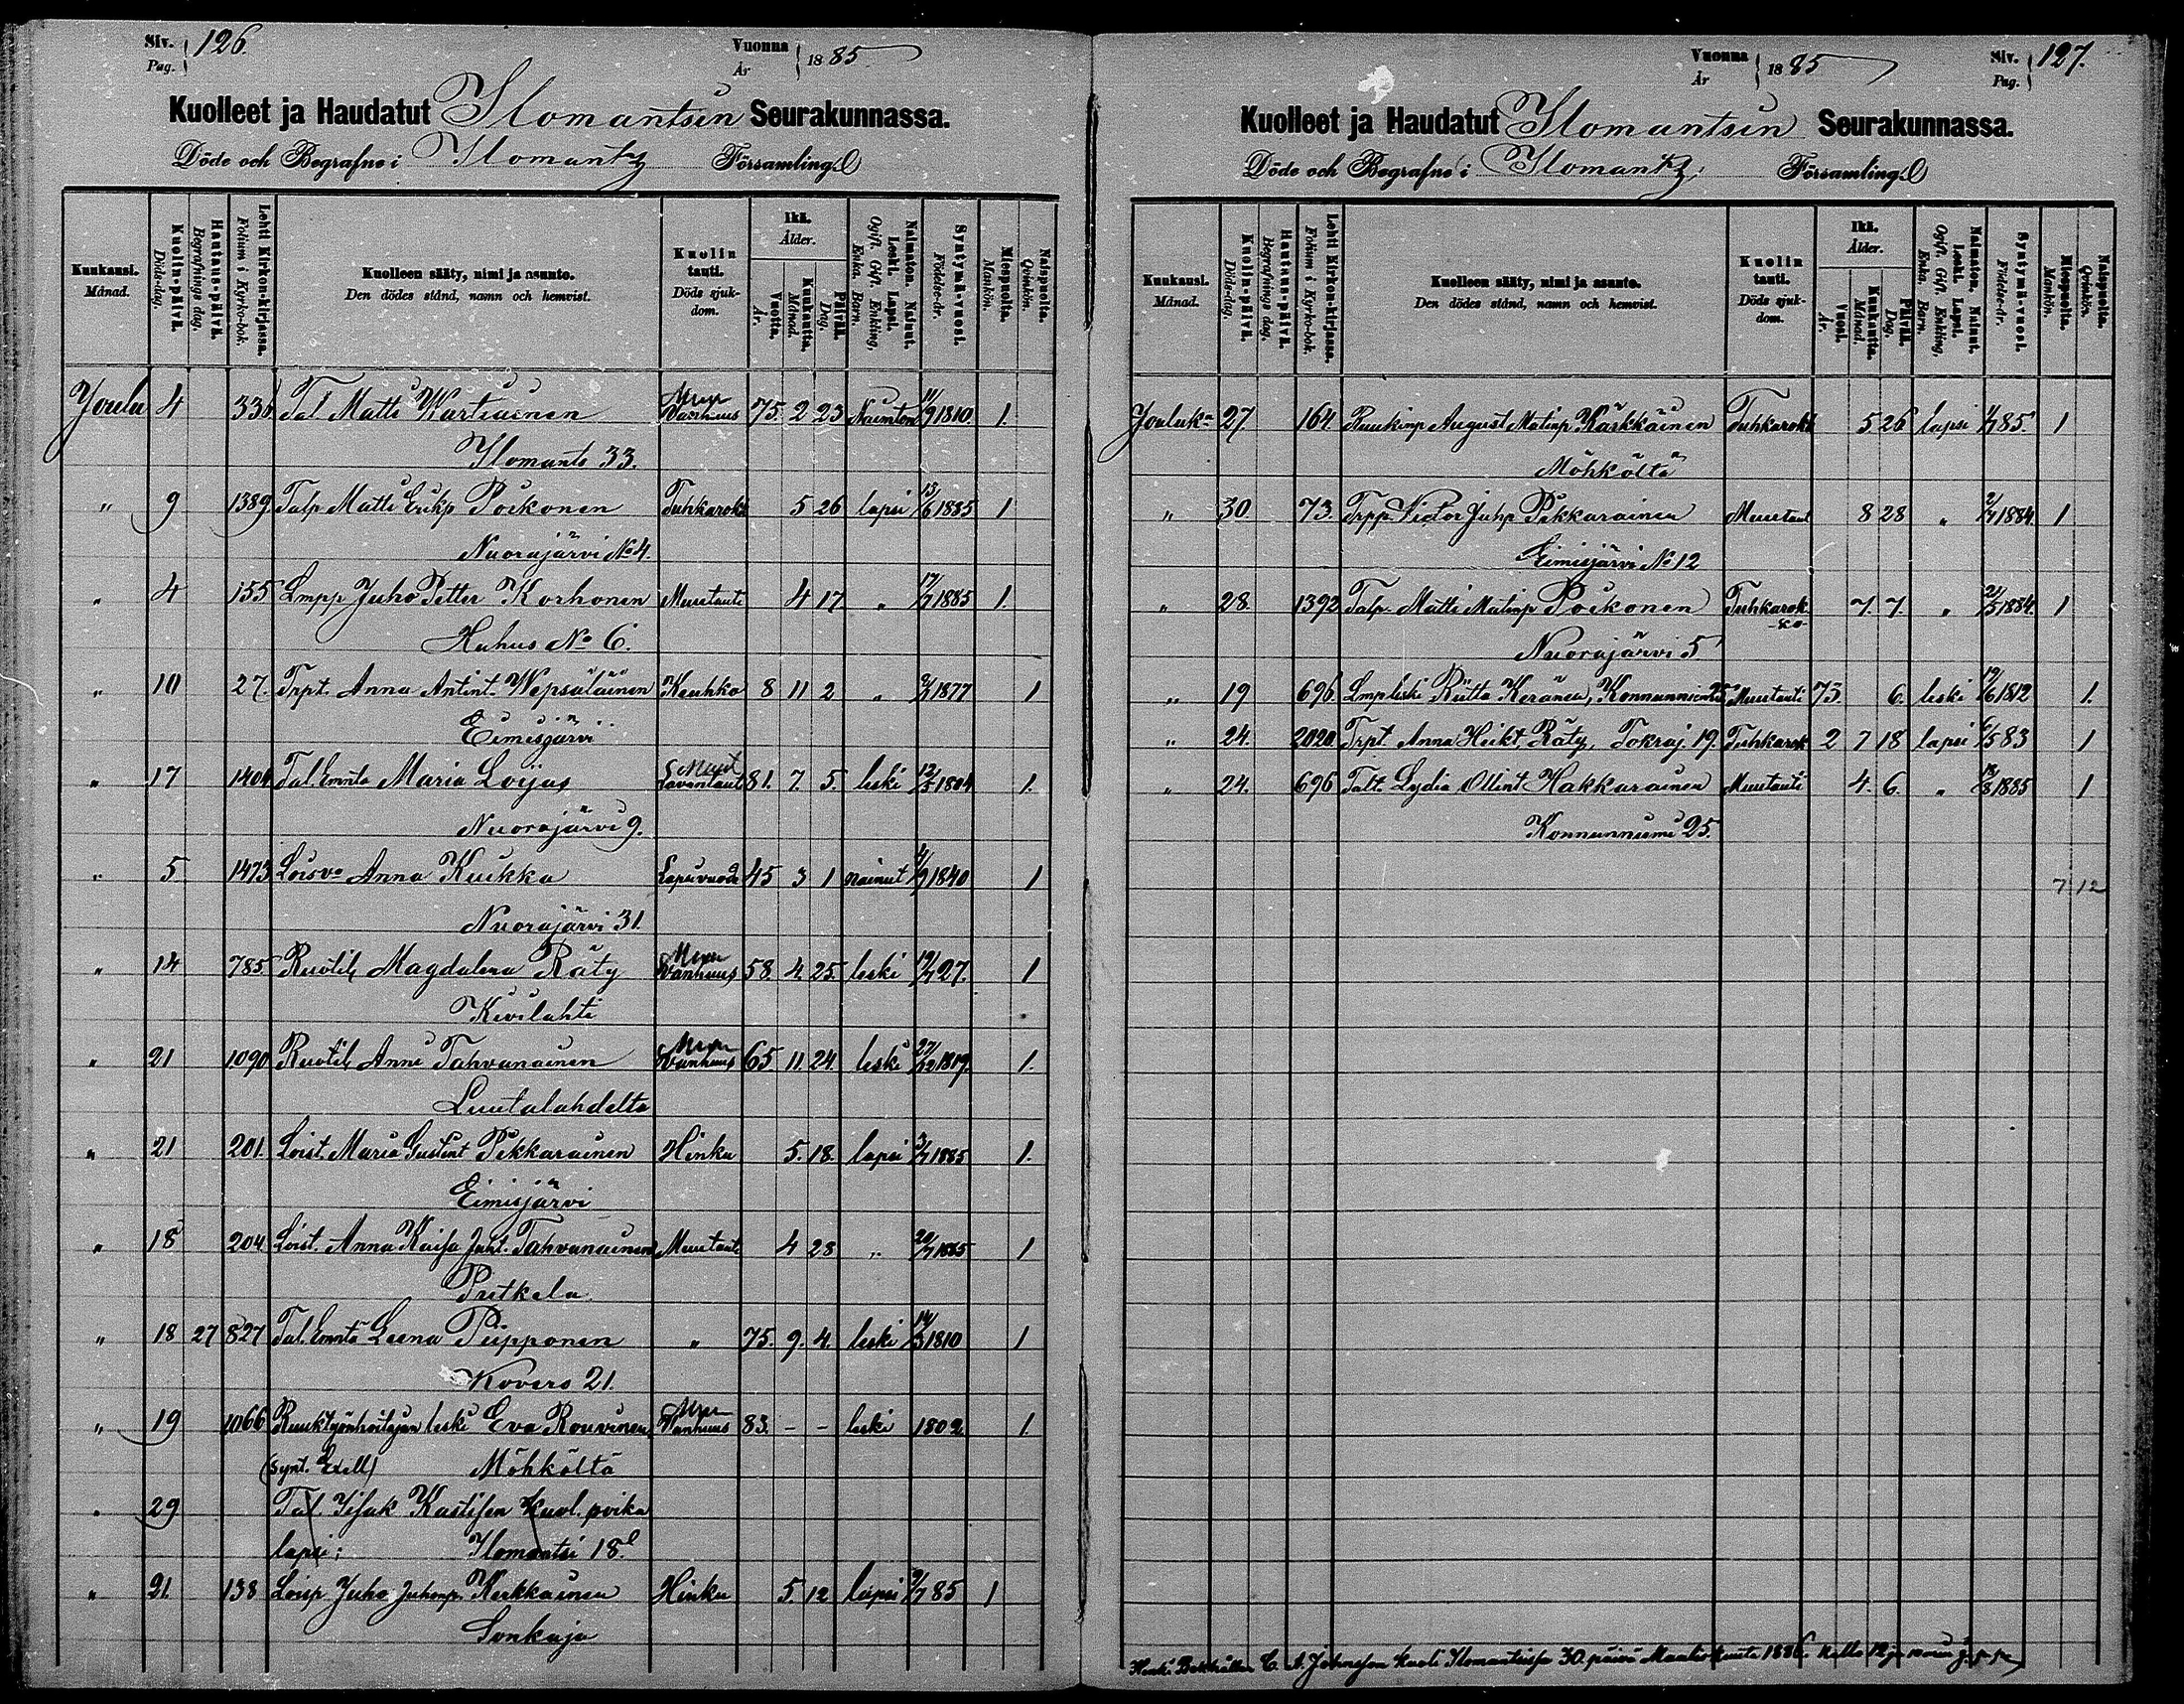 Siv. Pag. 126. Vuonna År 1885
Kuolleet ja Haudatut Ilomantsin Seurakunnassa.
Döde och Begrafne i Ilomantz Församling.
Kuukausi. Månad. Kuolin-päivä. Döds-dag. Hautaus-päivä. Begrafnings dag. Lehti Kirkon-kirjassa. Folium i Kyrko-bok. Kuolleen sääty, nimi ja asunto. Den dödes stånd, namn och hemvist. Kuolin tauti. Döds sjuk-dom. Ikä. Ålder. Vuotta. År. Kuukautta. Månad. Päivää. Dag. Naimaton. Nainut. Leski. Lapsi. Ogift. Gift. Enkling, Enka. Barn. Syntymä-vuosi. Födelse-år. Miespuolta. Mankön. Naispuolta. Qvinkön.
Joulu 4 336 Tal Matti Wartiainen Muu Vanhuus 75. 2 23 Naimton 11/9 1810. 1.
Ilomants 33.
" 9 1389 Talp Matti Erikp Poikonen Tuhkarok 5 26 lapsi 13/6 1885 1
Nuorajärvi No 4.
" 4 155 Lmpp Juho Petter Korhonen Muutauti 4 17 " 17/7 1885 1.
Huhus No 6.
" 10 27. Trpt. Anna Antint. Wepsäläinen Keuhko 8 11 2 " 1877 1
Eimisjärvi
" 17 1404 Tal. Emntä Maria Loijas Muut 81. 7. 5. leski 12/5 1804 1.
Nuorajärvi 9.
" 5. 1473 Loisvo Anna Kuikka Lapsivuode 45 3 1 nainut 4/9 1840 1
Nuorajärvi 31.
" 14 785 Ruotil Magdalena Räty Muu Wanhuus 58. 4. 25. leski 19/7 27. 1
Kivilahti
" 21 1090 Ruotil Anni Tahvanainen Muu Wanhuus 65. 11. 24. leski 27/12 1819. 1.
Luutalahdelta
" 21 201. Loist. Maria Gustint Pekkarainen Hinku 5. 18. lapsi 3/7 1885 1.
Eimisjärvi
" 18 204 Loist. Anna Kaisa Juht. Tahvanainen Muutauti 4 28 " 20/7 1885 1
Putkela
" 18 27 827 Tal. Emntä Leena Piipponen " 75. 9. 4. leski 14/3 1810 1
Kovero 21.
" 19 1066 Ruuktyönhoitajan leski Eva Rouvinen Muu Wanhuus 83. - - leski 1802. 1.
(synt. Exell) Möhköltä
" 29 Tal. Isak Kastisen kuol. poika
lapsi; Ilomantsi 18.
" 21. 138 Loisp Juho Juhonp. Kerkkäinen Hinku 5. 12 lapsi 9/7 85 1
Sonkaja
Vuonna År 1885 Siv. Pag. 127.
Kuolleet ja Haudatut Ilomantsin Seurakunnassa.
Döde och Begrafne i Ilomantz Församling.
Kuukausi. Månad. Kuolin-päivä. Döds-dag. Hautaus-päivä. Begrafnings dag. Lehti Kirkon-kirjassa. Folium i Kyrko-bok. Kuolleen sääty, nimi ja asunto. Den dödes stånd, namn och hemvist. Kuolin tauti. Döds sjuk-dom. Ikä. Ålder. Vuosi. År. Kuukautta. Månad. Päivää. Dag. Naimaton. Nainut. Leski. Lapsi. Ogift. Gift. Enkling, Enka. Barn. Syntymä-vuosi. Födelse-år. Miespuolta. Mankön. Naispuolta. Qvinkön.
Jouluk. 27 164. Ruukinp August Matinp Käskkäinen Tuhkarok 5 26 lapsi 1/7 85. 1
Möhköltä
" 30 73. Trpp. Victor Juhp Pekkarainen Muutaut 8 28 " 1884. 1
Eimisjärvi No 12
" 28. 1392 Talp. Matti Matinp Poikonen Tuhkarok-ko 7. 7. " 21/5 1884. 1
Nuorajärvi 5
" 19 696. Lmpleski Riitta Keränen, Konnunniemi Muutauti 73. 6. leski 1812 1.
" 24. 2020. Trpt. Anna Heikt. Räty, Tokraj. 19. Tuhkarok 2 7 18 lapsi 6/5 83 1
" 24. 696 Talt. Lydia Ollint Hakkarainen Muutauti 4. 6. " 18/8 1885 1
Konnunniemi 25.
7 12
C. A. Johnsson kuoli Ilomantsissa 30. päivä Maaliskuuta 1886. kello 12